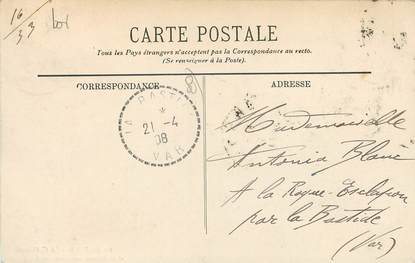 16/33
CARTE POSTALE
Tous les Pays étrangers n'acceptent pas la Correspondance au recto.
(Se renseigner à la Poste).
CORRESPONDANCE
ADRESSE
LA BASTIDE
21 -4
08
VAR
Mademoiselle
Antonia Blanc
A la Roque-Esclapon
par la Bastide
(Var)